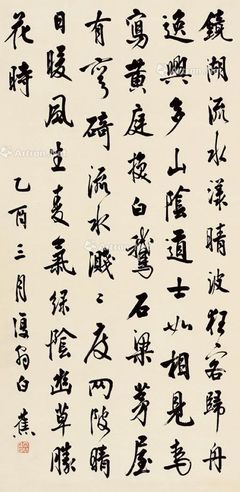 鏡湖流水漾晴波狂客歸舟
逸興多山陰道士如相見為
寫黃庭換白鵝石梁茅屋
有彎碕流水濺〻度兩陂晴
日暖風生麥氣綠陰幽草勝
花時
乙酉三月復翁白蕉